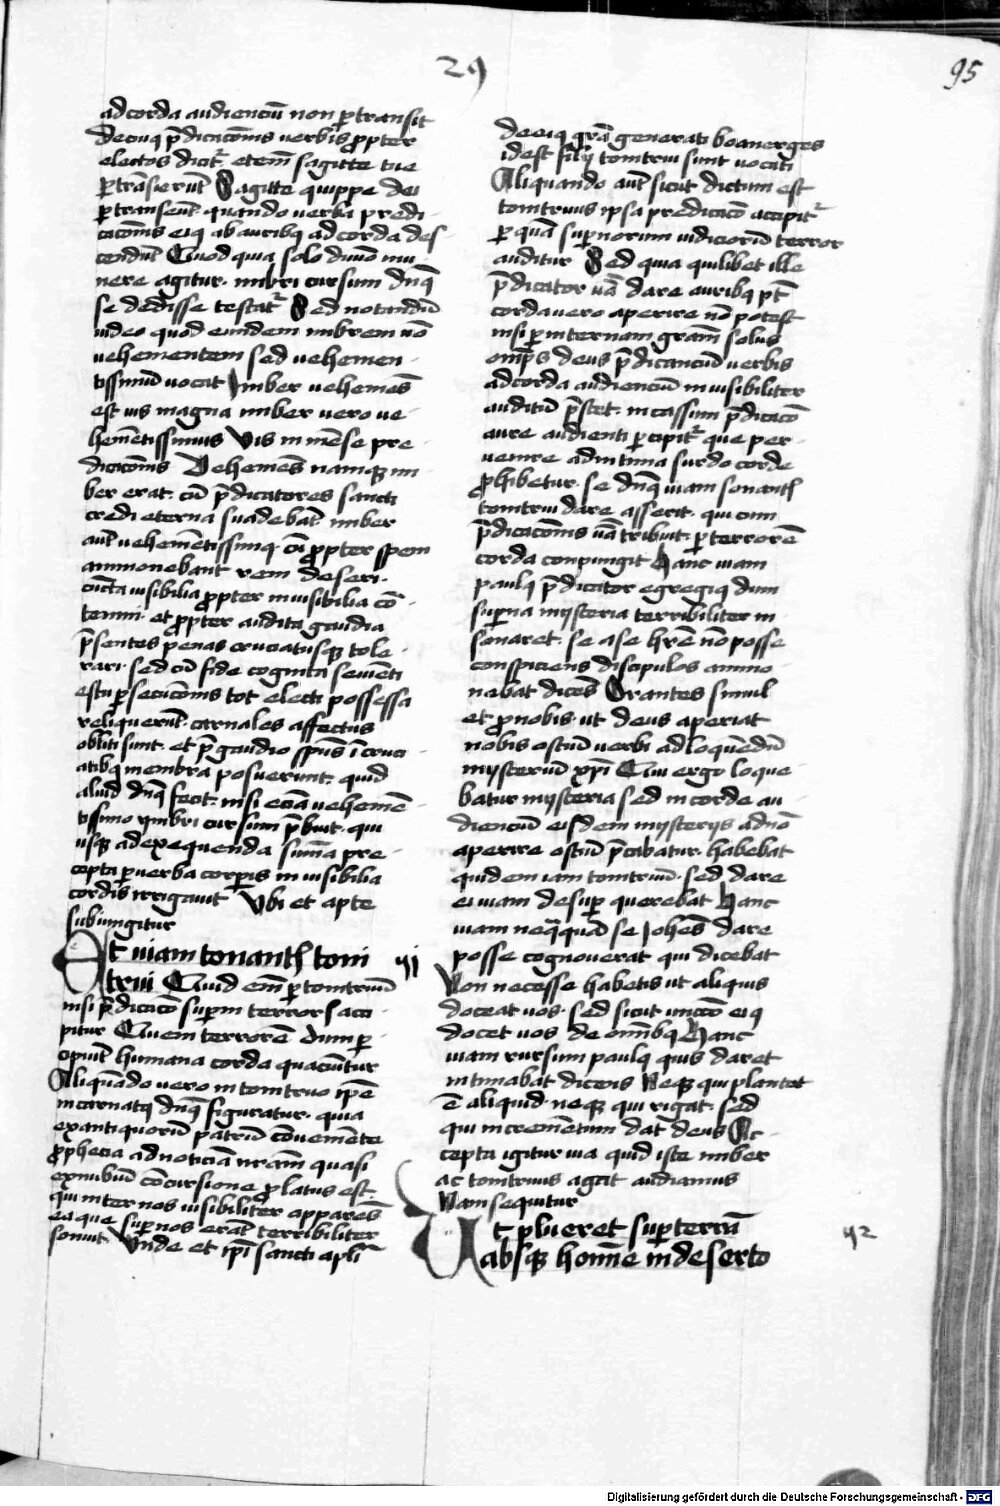 29
95
ad corda audienciū non ꝑtransit
de cuiꝰ p̄dicacōnis verbis ꝓpter
electos dicit᷑ etem̄ sagitte tue
ꝑtrāsierūt Sagitte quippe dei
ꝑtranseūt quando verba predi-
cacōnis eiꝰ ab auribꝰ ad corda des-
cendūt Quod quia solo diuīo mu-
nere agitur· imbri cursum dn̄s
se dedisse testat᷑ Sed notandū
video quod eundem imbrem nō
vehementem sed vehemen-
tissimū vocat Imber vehemēs
est vis magna imber vero ve-
hemētissimus vis inmēse pre-
dicacōnis Vehemēs namqꝫ im-
ber erat· cū p̄dicatores sancti
credi eterna suadebāt· imber
aūt vehemētissimꝰ· cū ꝓpter spem
ammonebant rem deseri·
cūcta visibilia ꝓpter invisibilia cō-
temni· et ꝓpter audita gaudia
p̄sentes penas cruciatusqꝫ tole-
rari· sed cū fide cognita sevienti
estu ꝑsecucōnis tot electi possessa
reliquerūt· carnales affectus
obliti sunt· et p̄ gaudio spūs ī cruci-
atibꝰ membra posuerunt· quid
aliud dn̄s fecit· nisi eciā vehemē-
tissimo ymbri cursum p̄buit· qui
usqꝫ ad exequenda summa pre-
cepta ꝑ verba corꝑis invisibilia
cordis irrigauit Vbi et apte
subiungitur
Et viam tonantis toni
trui Quid em̄ ꝑ tonitruū
nisi p̄dicacō suꝑni terroris acci-
pitur Quem terrorē dum ꝑ-
cipiūt humana corda quaciūtur
Aliquādo vero in tonitruo ip̄e
incarnatꝰ dn̄s figuratur· quia
ex antiquorū patrū cōveniente
ꝓphecia ad noticiā nr̄am quasi
ex nubiū cōcursione ꝓlatus est
qui inter nos visibiliter apparēs
ea que suꝑ nos erāt terribiliter
sonuit· Vnde et ip̄i sancti apl̄i
yj
de eiꝰ gr̄a generati boanerges
id est filij tonitrui sunt vocati
Aliquando aūt sicut dictum est
tonitruus ipsa predicacō accipit᷑
ꝑ quā suꝑnorum iudiciorū terror
auditur Sed quia quilibet ille
p̄dicator vā dare auribꝰ pt̄
corda vero aperire nō potest
nisi ꝑ internam gram̄ solus
omp̄s deus p̄dicanciū verbis
ad corda audienciū invisibiliter
auditū p̄stet· incassum p̄dicacō
aure audienti ꝑcipit᷑ que per-
venire ad intima surdo corde
ꝓhibetur· se dn̄s viam sonantis
tonitrui dare asserit· qui cum
p̄dicacōnis vā tribuit· ꝑ terrorē
corda compungit Hanc viam
paulꝰ p̄dicator egregiꝰ dum
suꝑna mysteria terribiliter in
sonaret· se a se hr̄e nō posse
conspiciens discipulos ammo-
nebat dicēs Orantes simul
et ꝓ nobis· ut deus aperiat
nobis ostiū verbi ad loquēdū
mysteriū xp̄i Qui ergo loque-
batur mysteria sed in corde au-
dienciū eisdem mysterijs ad nō
aperire ostiū p̄cabatur· habebat
quidem iam tonitruū· sed dare
ei viam desuꝑ querebat Hanc
viam neq̄quā se Johēs dare
posse cognoverat qui dicebat
Non necesse habetis ut aliquis
doceat vos· sed sicut unctō eiꝰ
docet vos de om̄ibꝰ Hanc
viam rursum paulꝰ quis daret
intimabat dicens Neqꝫ qui plantat
ē aliquid· neqꝫ qui rigat· sed
qui incremētum dat deus Ac-
cepta igitur via quid iste imber
ac tonitruus agat audiamus
Nam sequitur
Ut plueret suꝑ terrā
absqꝫ homīe in deserto
Digitalisierung gefördert durch die Deutsche Forschungsgemeinschaft - DFG